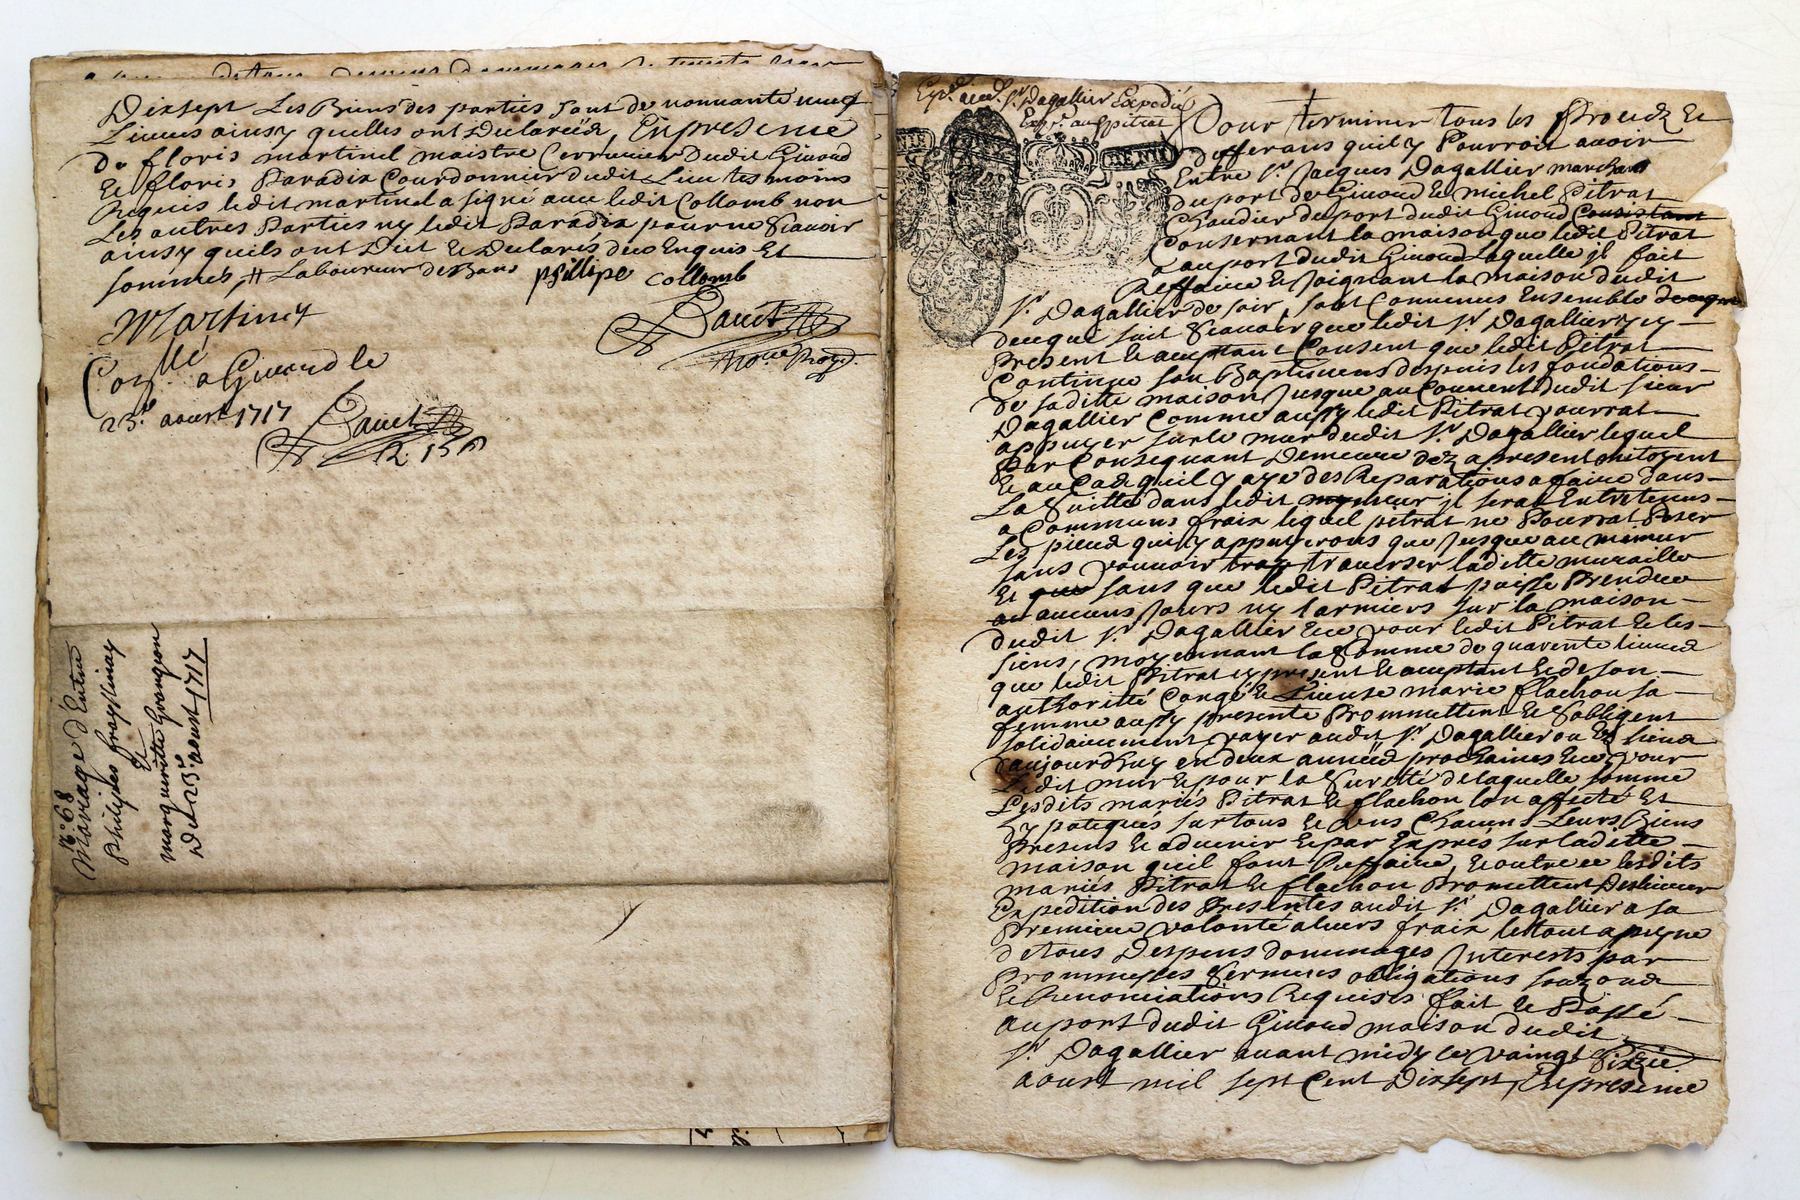 Dixsept Les Biens des parties sont de nonnante neuf
Liures ainsy quelles ont Declareés, En presence
De floris martinet maistre Cerrurier dudit Giuord
Et floris Paradix Courdonnier dudit Lieu tesmoins
Requis ledit martinet a signé auec ledit Collomb non
Les autres Parties ny ledit Paradix pour ne Scauoir
ainsy quils ont Dict Et Declarés de ce Enquis Et
sommés, # Laboureur
phillipe collomb
Martinet
Bauct
No.re Royal
Con.llé a Giuord le
23.e aoust 1717
Bauct
R. 15s
N.o 68
Mariage d'Entre
Philipes frayssinay
Et
margueritte Grangeon
Du 23.e aoust 1717
S.r Dagallier Expedié
Exp.r au s.r pitrat
Pour terminer tous les Procedz Et
differans quil y Pourroit auoir
Entre S.r Jacques Dagallier marchand
du port de Giuord Et michel Pitrat
Chaudier du port dudit Giuord Consistant
Consernant la maison que ledit Pitrat
a au port dudit Giuord Laquelle jl fait
Reffaire Et Joignant la maison dudit
S.r Dagallier de soir, sont Conuenus Ensemble
de ce qui suit Scauoir que ledit S.r Dagallier jcy
Present Et acceptant Consent que ledit Pitrat
Continue son Baptiment despuis les fondations
de saditte maison Jusque au Couuert dudit sieur
Dagallier Comme aussy ledit Pitrat pourrat
appuyer sur le mur dudit S.r Dagallier lequel
Par Consequant Demeure dez apresent mitoyent
Et au Cas quil y aye des Reparations a faire dans
La Suitte dans ledit mur jl serat Entretenus
a Communs fraix lequel pitrat ne Pourrat Poser
Les pieces quil y appuyerons que Jusque au mimur
sans pouuoir trap traverser laditte muraille
Et que sans que ledit Pitrat puisse Prendre
aucuns Jours ny larmiers sur la maison
dudit S.r Dagallier Et ce pour ledit Pitrat Et les
siens, moyennant la Somme de quarente liures
que ledit Pitrat cy present Et acceptant Et de son
authoritté Congé Et License marie flachon sa
femme aussy presente Promettent Et Sobligent
solidairement payer audit S.r Dagallier ou Es siens
d'aujourdhuy en deux années prochaines Et ce pour
Ledit mur Et pour la Suretté de laquelle somme
Lesdits mariés Pitrat Et flachon lon affecté Et
Ypotequés sur tous Et vns Chacuns Leurs Biens
Presens Et aduenir Et par Exprés sur laditte
maison quil font Reffaire, Et outre ce lesdits
mariés Pitrat Et flachon Promettent Desliurer
Expedition des Presentes audit S.r Dagallier a sa
Premiere volonté a leurs fraix le tout a peyne
de tous Despens dommages Jnterests par
Prommesses Sermens obligations
Et Renonciations Requises fait Et Passé
au port dudit Giuord maison dudit
S.r Dagallier auant midy le vaingt sixzie
aoust mil sept Cent Dixsept, En presence